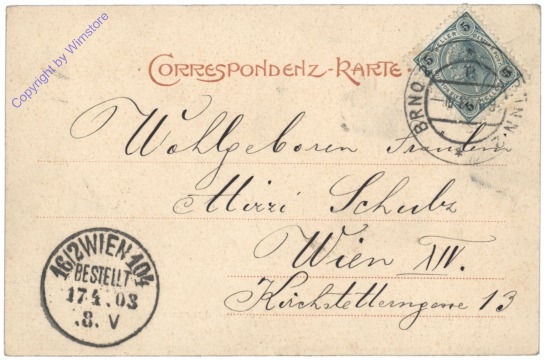 Copyright by Wimstore
CORRESPONDENZ-KARTE
5
5
5
BRNO
Wohlgeboren Fräulein
Mizzi Schulz
Wien XIV.
Kirchstetterngasse 13
16/2 WIEN 104
BESTELLT
17.4.03
.8. V